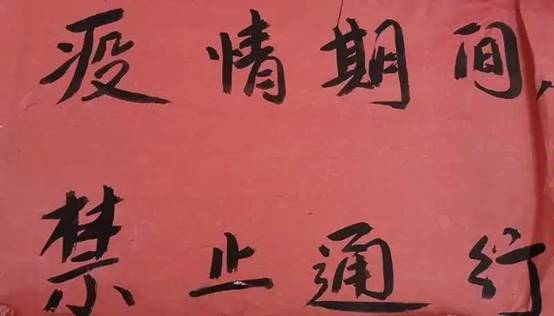 疫情期间,
禁止通行